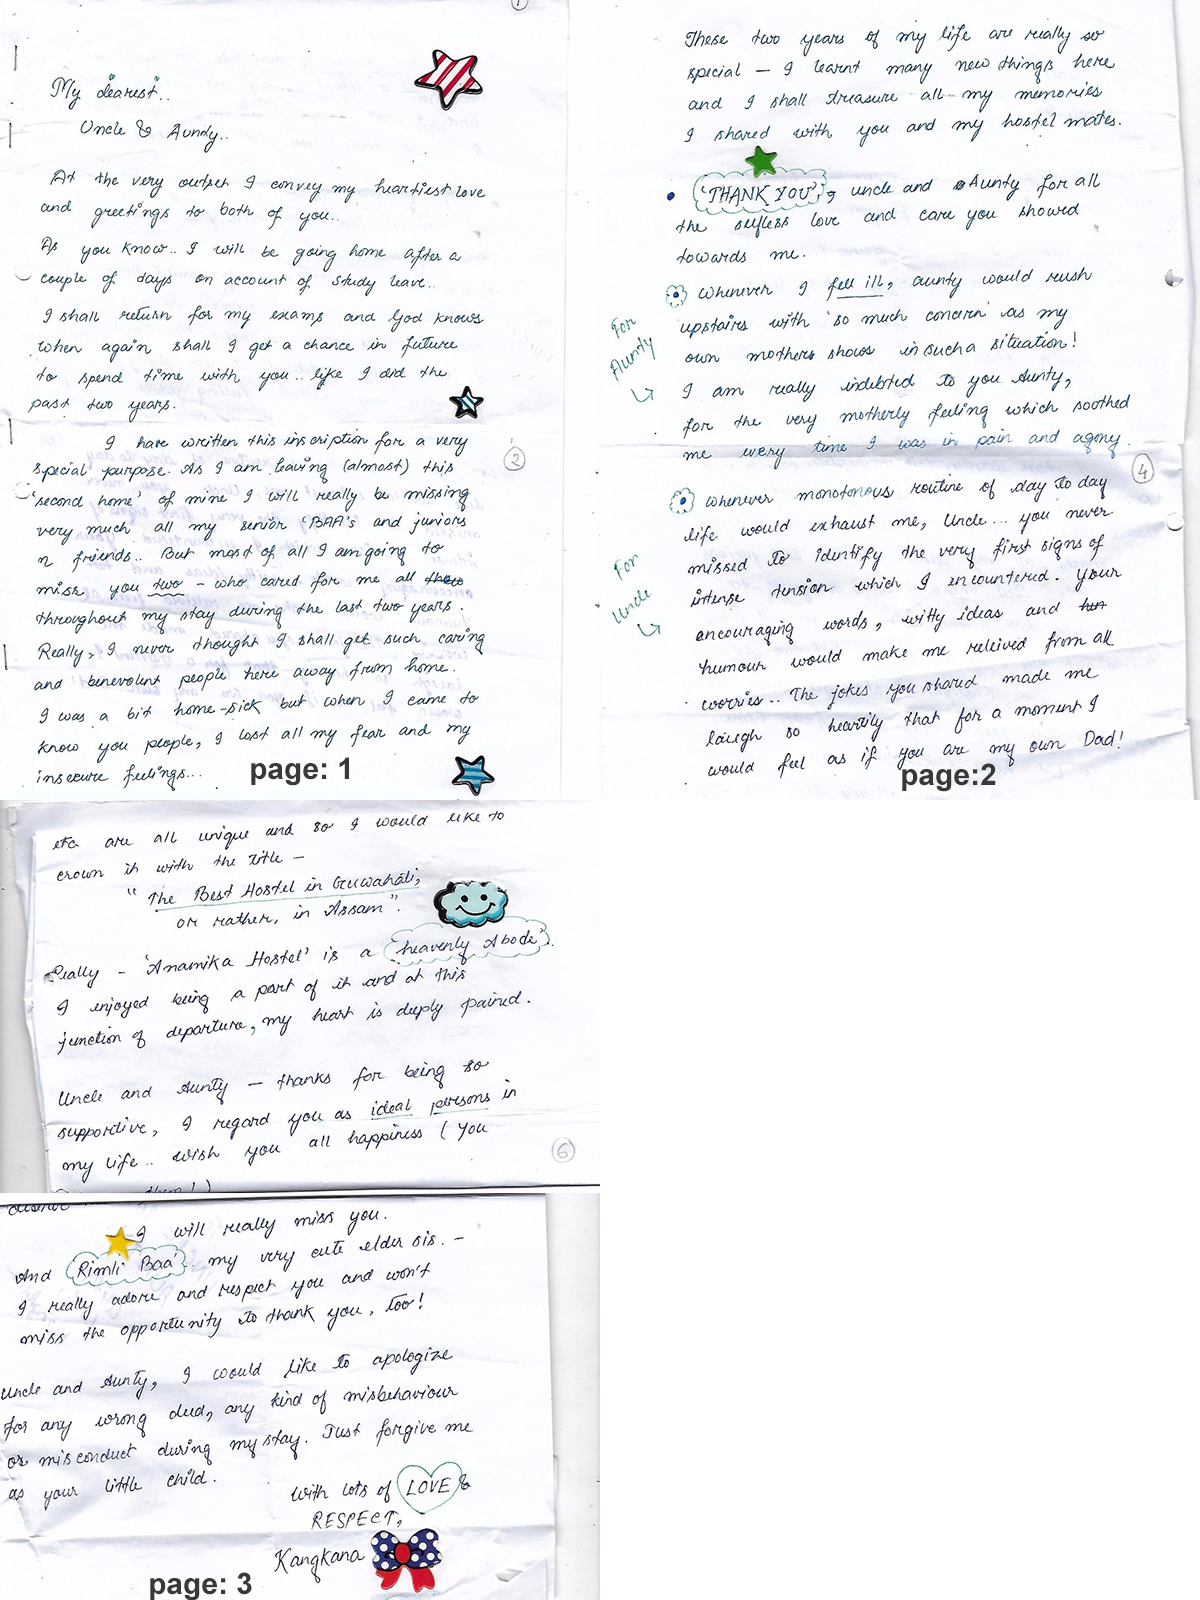 1
My dearest..
Uncle & Aunty..
At the very outset I convey my heartiest love
and greetings to both of you..
As you know.. I will be going home after a
couple of days on account of study leave..
I shall return for my exams and God knows
when again shall I get a chance in future
to spend time with you.. like I did the
past two years.
I have written this inscription for a very
special purpose. As I am leaving (almost) this
2
'second home' of mine I will really be missing
very much all my senior 'BAA's and juniors
n friends.. But most of all I am going to
miss you two - who cared for me all
throughout my stay during the last two years.
Really, I never thought I shall get such caring
and benevolent people here away from home.
I was a bit home-sick but when I came to
know you people, I lost all my fear and my
insecure feelings...
page: 1
These two years of my life are really so
special — I learnt many new things here
and I shall treasure all my memories
I shared with you and my hostel mates.
• 'THANK YOU', uncle and Aunty for all
the selfless love and care you showed
towards me.
For Aunty
Whenever I fell ill, aunty would rush
upstairs with 'so much concern' as my
own mothers shows in such a situation!
I am really indebted to you Aunty,
for the very motherly feeling which soothed
me every time I was in pain and agony.
4
For Uncle
Whenever monotonous routine of day to day
life would exhaust me, Uncle... you never
missed to identify the very first signs of
intense tension which I encountered. Your
encouraging words, witty ideas and
humour would make me releived from all
worries.. The jokes you shared made me
laugh so heartily that for a moment I
would feel as if you are my own Dad!
page:2
etc are all unique and so I would like to
crown it with the title —
"The Best Hostel in Guwahati,
or rather, in Assam".
Really - 'Anamika Hostel' is a 'heavenly Abode'.
I enjoyed being a part of it and at this
junction of departure, my heart is deeply pained.
Uncle and Aunty — thanks for being so
supportive, I regard you as ideal persons in
my life.. wish you all happiness (You
6
them!)
I will really miss you.
And 'Rimli Baa' my very cute elder sis. —
I really adore and respect you and won't
miss the opportunity to thank you, too!
Uncle and Aunty, I would like to apologize
for any wrong deed, any kind of misbehaviour
or misconduct during my stay. Just forgive me
as your little child.
with lots of LOVE &
RESPECT,
Kangkana
page: 3